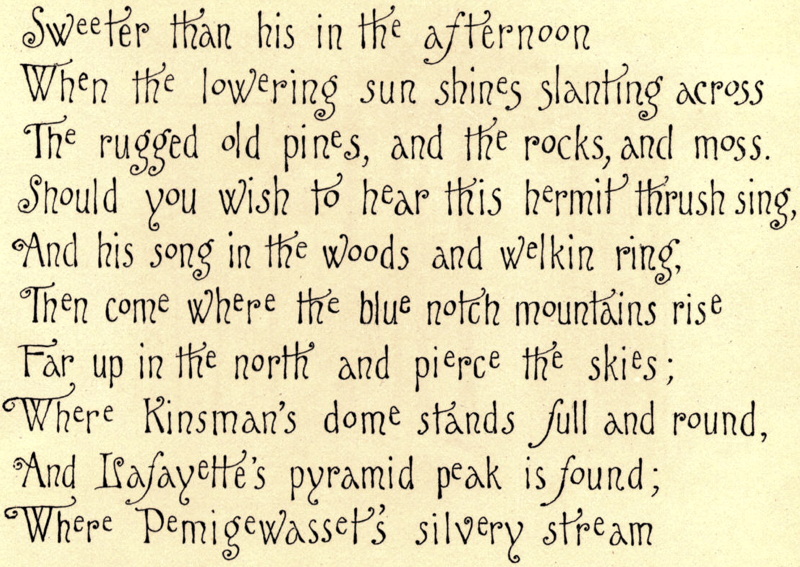 Sweeter than his in the afternoon
When the lowering sun shines slanting across
The rugged old pines, and the rocks, and moss.
Should you wish to hear this hermit thrush sing,
And his song in the woods and welkin ring,
Then come where the blue notch mountains rise
Far up in the north and pierce the skies;
Where Kinsman's dome stands full and round,
And Lafayette's pyramid peak is found;
Where Pemigewasset's silvery stream